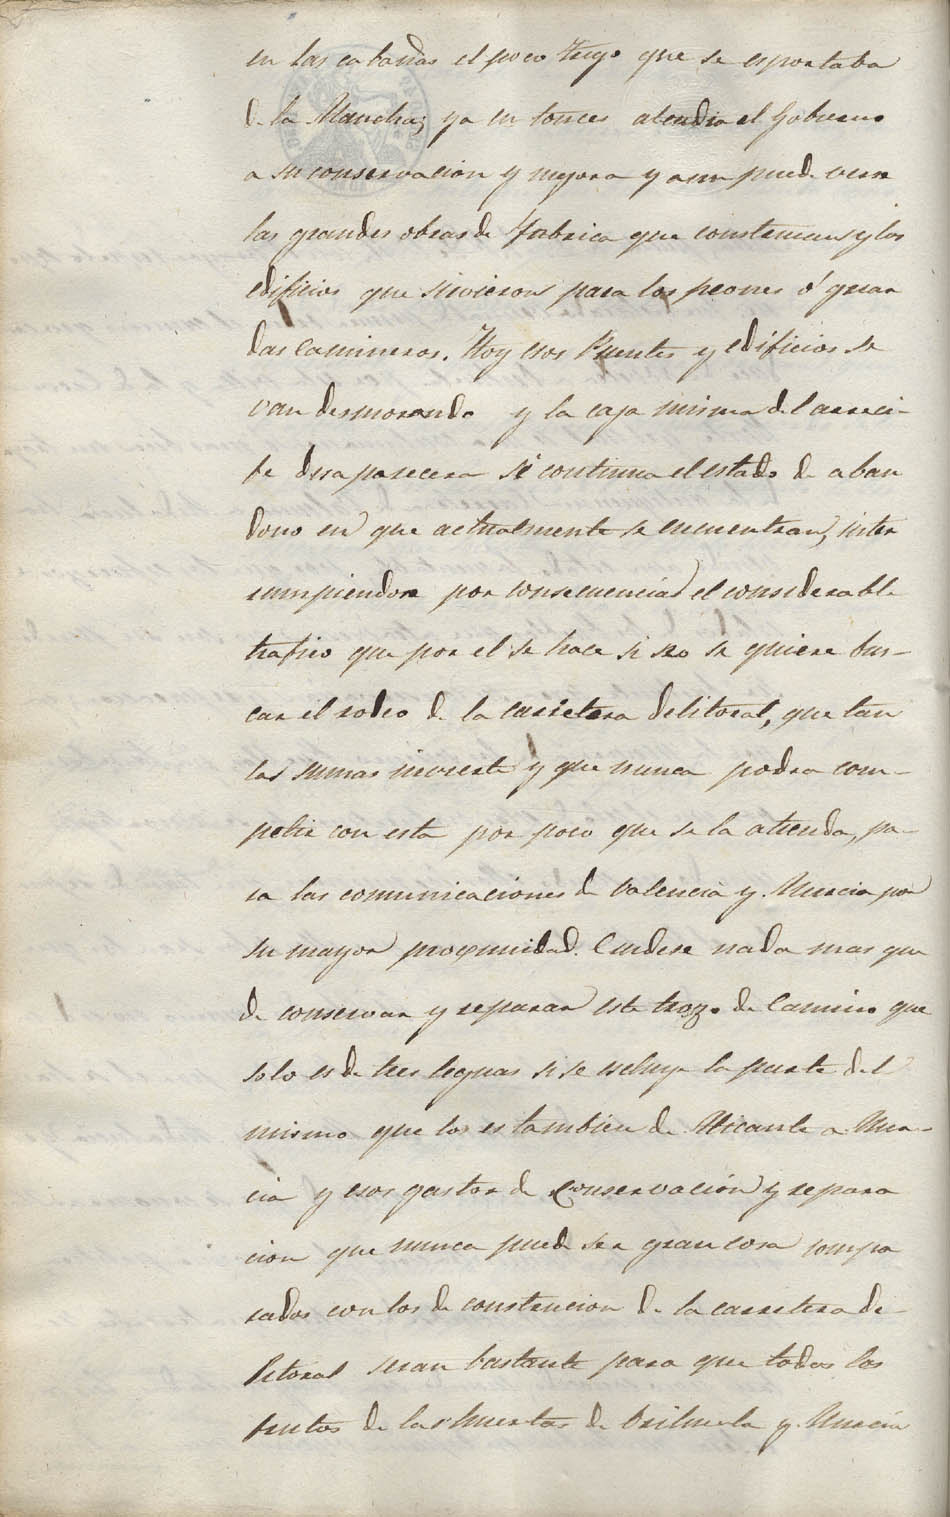 en las cabañas el poco trigo que se esportaba
de la Mancha; ya entonces atendia el Gobierno
a su conservacion y mejora y aun puede verse
las grandes obras de fabrica que construian y los
edificios que sirvieron para los peones ó guar
das camineros. Hoy esos Puentes y edificios se
van desmorando y la caja misma del arreci-
fe desaparecera si continua el estado de aban
dono en que actualmente se encuentran, inter
rumpiendose por consecuencia el considerable
trafico que por el se hace si no se quiere bus-
car el rodeo de la carretera delitoral, que tan
tas sumas invierte y que nunca podra com-
petir con esta por poco que se la atienda, pa-
ra las comunicaciones de Valencia y Murcia por
su mayor proximidad. Cuidese nada mas que
de conservar y reparar este trozo de Camino que
solo es de tres leguas si se escluye la parte del
mismo que lo es tambien de Alicante a Mur-
cia y esos gastos de conservación y repara
cion que nunca puede ser gran cosa compa
rados con los de construcion de la carretera de
litoral seran bastante para que todos los
frutos de las huertas de Orihuela y Murcia